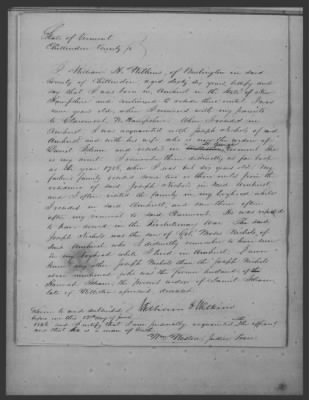 State of Vermont
Chittenden County ss
I William H. Wilkins, of Burlington in said
County of Chittenden aged sixty six years, certify and
say that I was born in Amherst in the State of New
Hampshire and continued to reside there until I was
nine years old, when I removed with my parents
to Claremont, N. Hampshire. When I resided in
Amherst I was acquainted with Joseph Nichols of said
Amherst and with his wife who is now the widow of
Daniel Isham and resides in St George Vermont. She
is my aunt. I remember them distinctly as far back
as the year 1786, when I was but six years old. My
father's family resided some two or three miles from the
residence of said Joseph Nichols in said Amherst,
and I often visited the family in my boyhood while
I resided in said Amherst, and saw them often
after my removal to said Claremont. He was reputed
to have served in the Revolutionary War. The said
Joseph Nichols was the son of Moses Nichols of
said Amherst who I distinctly remember to have seen
in my boyhood while I lived in Amherst. I never
knew any other Joseph Nichols than the Joseph Nichols
above mentioned, who was the former husband of the
Hannah Isham the present widow of Daniel Isham
late of Williston aforesaid deceased.
William H Wilkins
Sworn to and subscribed
before me this 12th day of June
1846 and I certify that I am personally acquainted with the affiant
and that he is a man of truth
Wm Weston Justice Peace